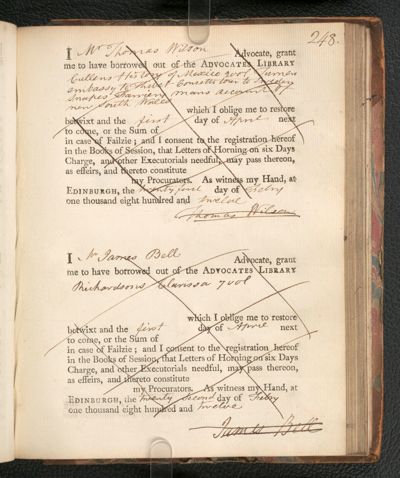 248.
I Mr Thomas Wilson Advocate, grant
me to have borrowed out of the ADVOCATES LIBRARY
Cullens History of Mexico 2 vol Turners
embassy to Thibet Consetts tour to Sweden
Snapes Mans account of
new South Wales
which I oblige me to restore
betwixt and the first day of April next
to come, or the Sum of
in case of Failzie; and I consent to the registration hereof
in the Books of Session, that Letters of Horning on six Days
Charge, and other Executorials needful, may pass thereon,
as effeirs, and thereto constitute
my Procurators. As witness my Hand, at
EDINBURGH, the twenty first day of Febry
one thousand eight hundred and twelve
Thomas Wilson
I Mr James Bell Advocate, grant
me to have borrowed out of the ADVOCATES LIBRARY
Richardsons Clarissa 7 vol
which I oblige me to restore
betwixt and the first day of April next
to come, or the Sum of
in case of Failzie; and I consent to the registration hereof
in the Books of Session, that Letters of Horning on six Days
Charge, and other Executorials needful, may pass thereon,
as effeirs, and thereto constitute
my Procurators. As witness my Hand, at
EDINBURGH, the twenty second day of Febry
one thousand eight hundred and twelve
James Bell